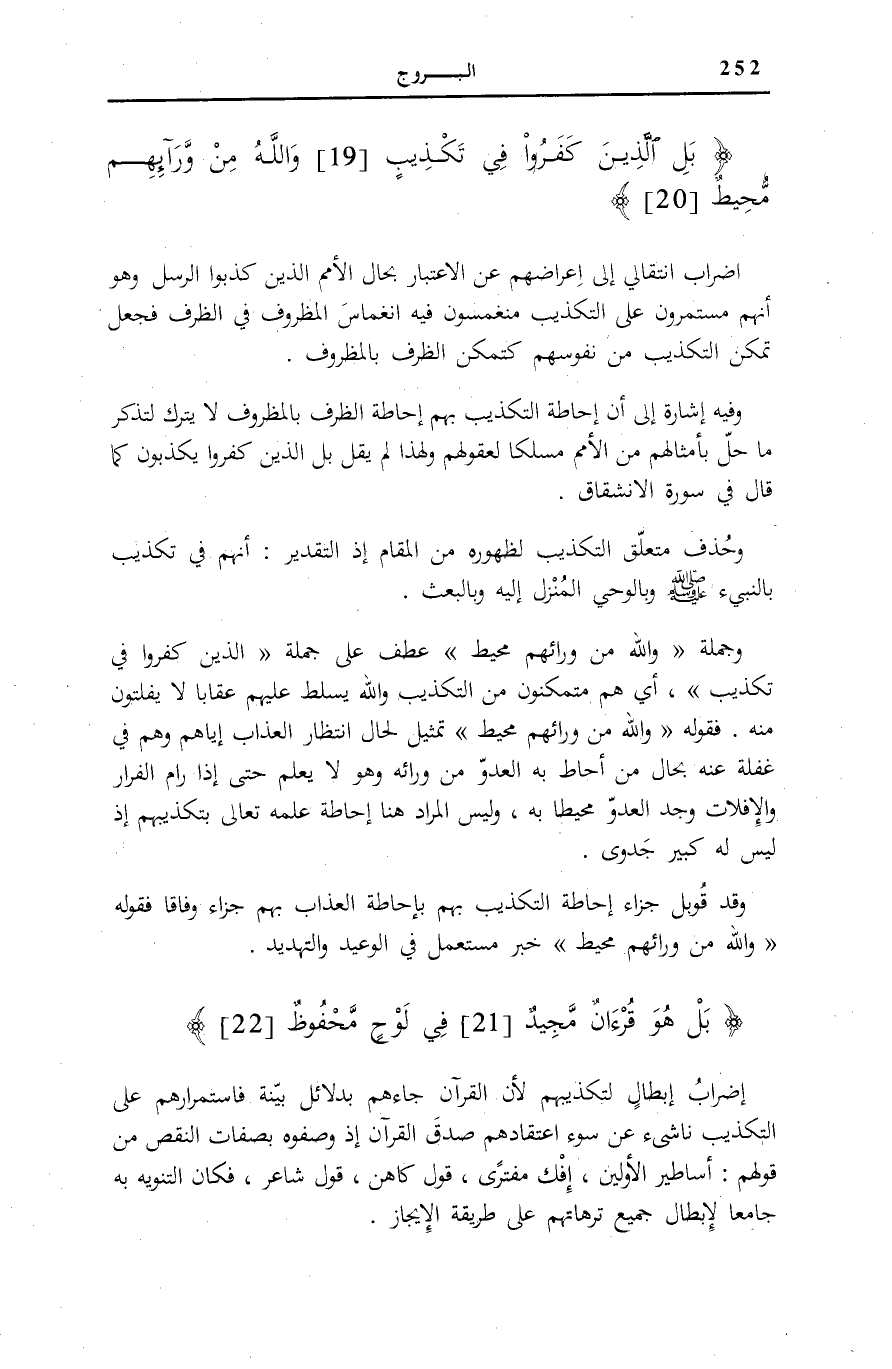 252
البـــروج
﴿ بَلِ ٱلَّذِيـنَ كَفَـرُواْ فِي تَكْـذِيبٍ [19] وَاللَّـهُ مِنْ وَّرَآئِهِـــم
مُّحِيطٌ [20] ﴾
اضراب انتقالي إلى إعراضهم عن الاعتبار بحال الأمم الذين كذبوا الرسل وهو
أنهم مستمرون على التكذيب منغمسون فيه انغماسَ المظروف في الظرف فجعل
تمكن التكذيب من نفوسهم كتمكن الظرف بالمظروف .
وفيه إشارة إلى أن إحاطة التكذيب بهم إحاطة الظرف بالمظروف لا يترك لتذكر
ما حلّ بأمثالهم من الأمم مسلكا لعقولهم ولهذا لم يقل بل الذين كفروا يكذبون كما
قال في سورة الانشقاق .
وحُذف متعلّق التكذيب لظهوره من المقام إذ التقدير : أنهم في تكذيب
بالنبيء ﷺ وبالوحي المُنْزل إليه وبالبعث .
وجملة « والله من ورائهم محيط » عطف على جملة « الذين كفروا في
تكذيب » ، أي هم متمكنون من التكذيب والله يسلط عليهم عقابا لا يفلتون
منه . فقوله « والله من ورائهم محيط » تمثيل لحال انتظار العذاب إياهم وهم في
غفلة عنه بحال من أحاط به العدوّ من ورائه وهو لا يعلم حتى إذا رام الفرار
والإفلات وجد العدوّ محيطا به ، وليس المراد هنا إحاطة علمه تعالى بتكذيبهم إذ
ليس له كبير جَدوى .
وقد قُوبل جزاء إحاطة التكذيب بهم بإحاطة العذاب بهم جزاء وفاقا فقوله
« والله من ورائهم محيط » خبر مستعمل في الوعيد والتهديد .
﴿ بَلْ هُوَ قُرْءَانٌ مَّجِيدٌ [21] فِي لَوْحٍ مَّحْفُوظٌ [22] ﴾
إضرابُ إبطالٍ لتكذيبهم لأن القرآن جاءهم بدلائل بيّنة فاستمرارهم على
التكذيب ناشىء عن سوء اعتقادهم صدقَ القرآن إذ وصفوه بصفات النقص من
قولهم : أساطير الأولين ، إفْك مفترًى ، قول كاهن ، قول شاعر ، فكان التنويه به
جامعا لإبطال جميع ترهاتهم على طريقة الإيجاز .